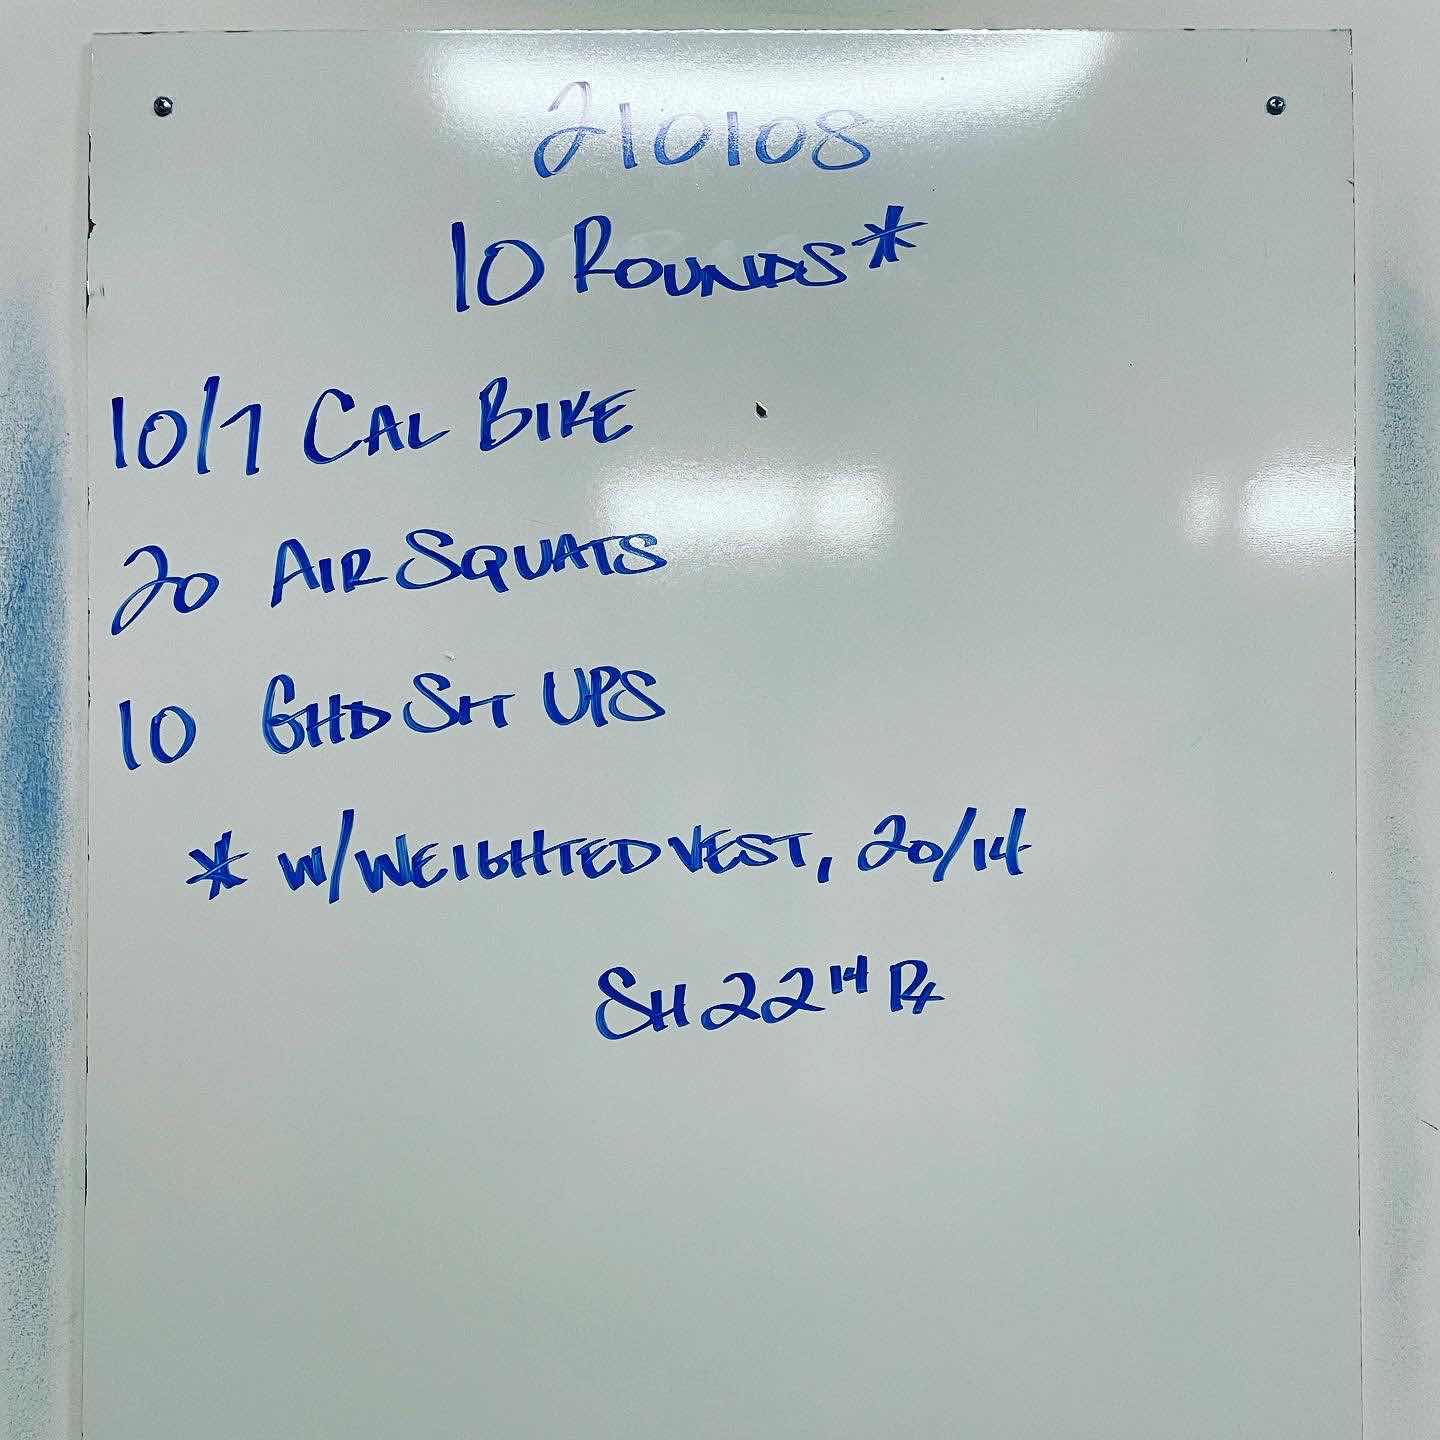 210108
10 ROUNDS*
10/7 CAL BIKE
20 AIR SQUATS
10 GHD SIT UPS
* W/WEIGHTED VEST, 20/14
SH 22 14 Rx